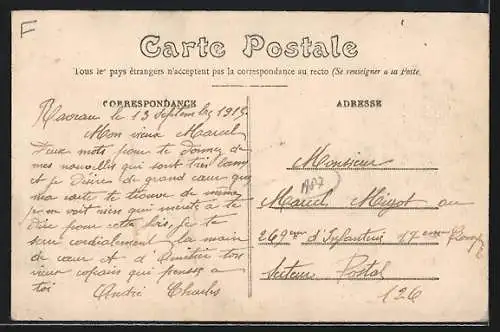 F
Carte Postale
Tous les pays étrangers n'acceptent pas la correspondance au recto (Se renseigner a la Poste.
CORRESPONDANCE
ADRESSE
le 13 Septembre 1915
Mon vieux Marcel
Deux mots pour te donner de
mes nouvelles qui sont très
et je désire de grand cœur que
ma carte te trouve de même
je ne voit rien
dire pour cette fois. je te
serre cordialement la main
de cœur et d'Amitier ton
vieux copain qui pense a
toi André Charles
Monsieur
Marcel au
269 eme d'Infanterie 17 eme
Secteur Postal
126